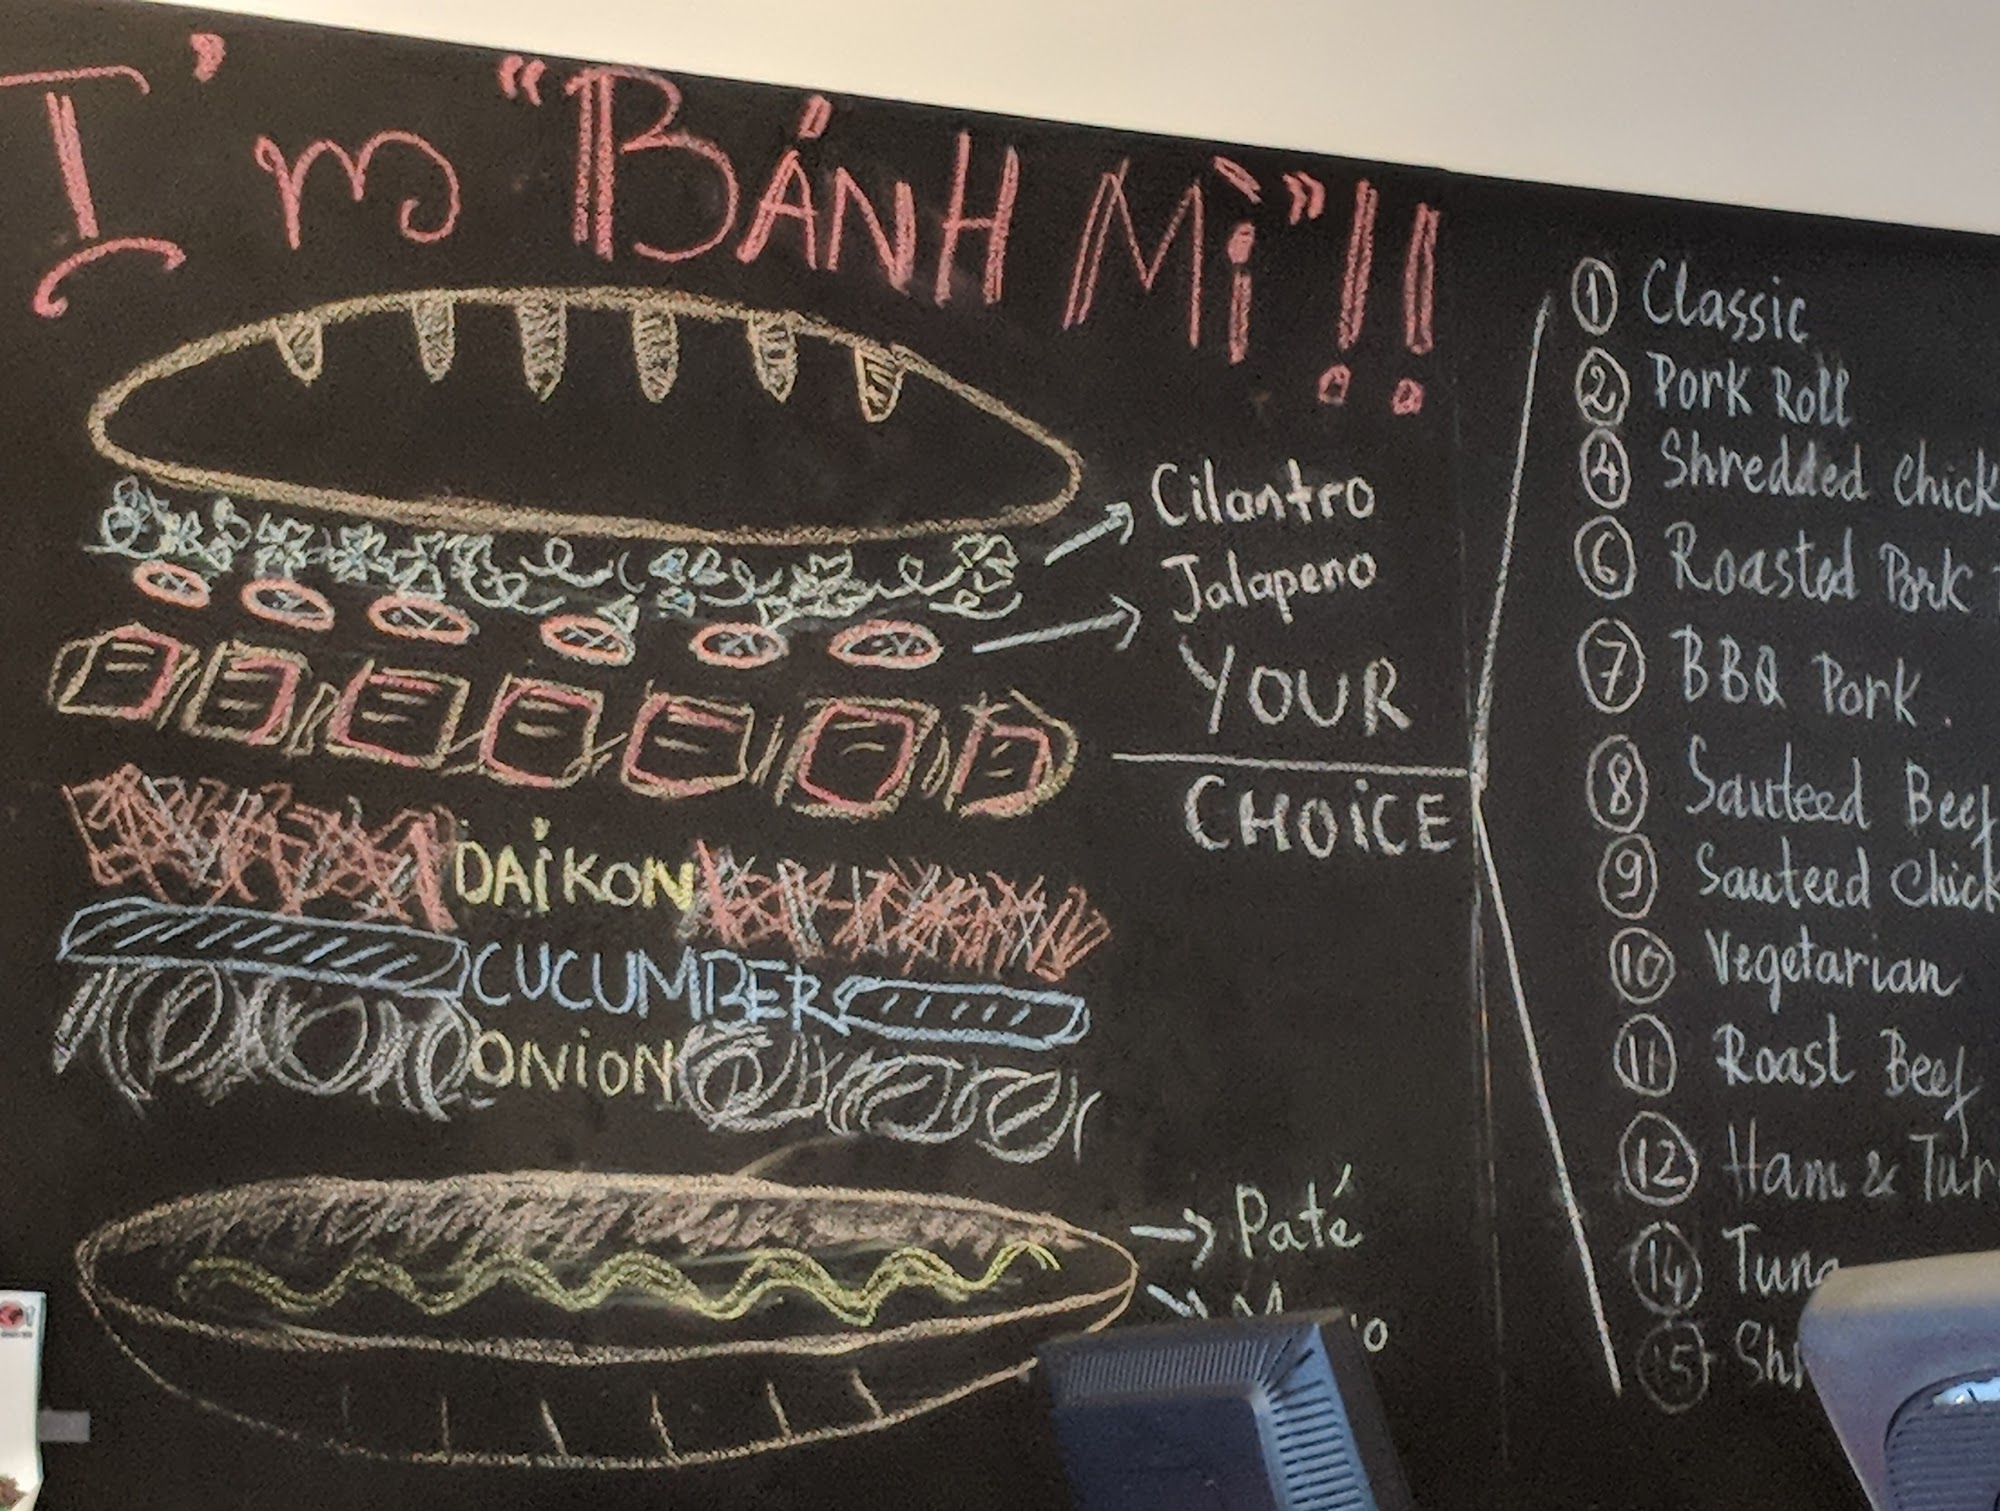 I'm "BÁNH Mì"!!
Cilantro
Jalapeno
YOUR
CHOiCE
DAiKON
CUCUMBER
ONiON
Paté
① Classic
② Pork Roll
④ Shredded Chick
⑥ Roasted Pork
⑦ BBQ Pork.
⑧ Sauteed Beef
⑨ Sauteed Chick
⑩ Vegetarian
⑪ Roast Beef
⑫ Ham & Tur
⑭ Tuna
⑮ Sh